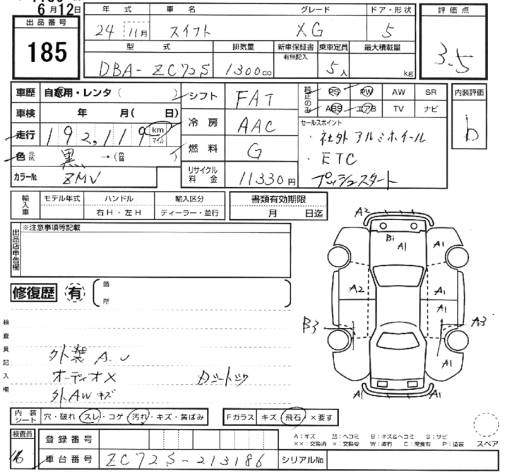 6月12日
出品番号
185
年式 車名 グレード ドア・形状
24年11月 スイフト XG 5
型式 排気量 新車保証書 乗車定員 最大積載量
有無記入
DBA-ZC72S 1300cc 5人 kg
評価点
3.5
車歴 自家用・レンタ( )
車検 年 月( 日)
走行 192,119 km マイル
色 元色 黒 → (色替 )
カラーNo ZMV
シフト FAT
冷房 AAC
燃料 G
リサイクル料金 11330円
PS PW AW SR
ABS エアB TV ナビ
セールスポイント
・社外アルミホイール
・ETC
プッシュスタート
内装評価
D
輸入車 モデル年式 ハンドル 輸入区分 書類有効期限
右H・左H ディーラー・並行 月 日迄
出品店申告欄
※注意事項等記載
修復歴 有
箇所
検査員記入欄
外装 A.U
オーディオX
外AWキズ
A2
Bi
A1 A1 A1
A2 A1 A1
B3 A1 A3
A1
内装シート 穴・破れ スレ・コゲ 汚れ・キズ・黄ばみ
Fガラス キズ 飛石 ×要す
A:キズ U:ヘコミ B:キズ&ヘコミ S:サビ
××:交換済 ×:交換要 W:波有 C:腐食有 P:塗装 スペア
検査員
登録番号
車台番号 ZC72S-213186 シリアルNo